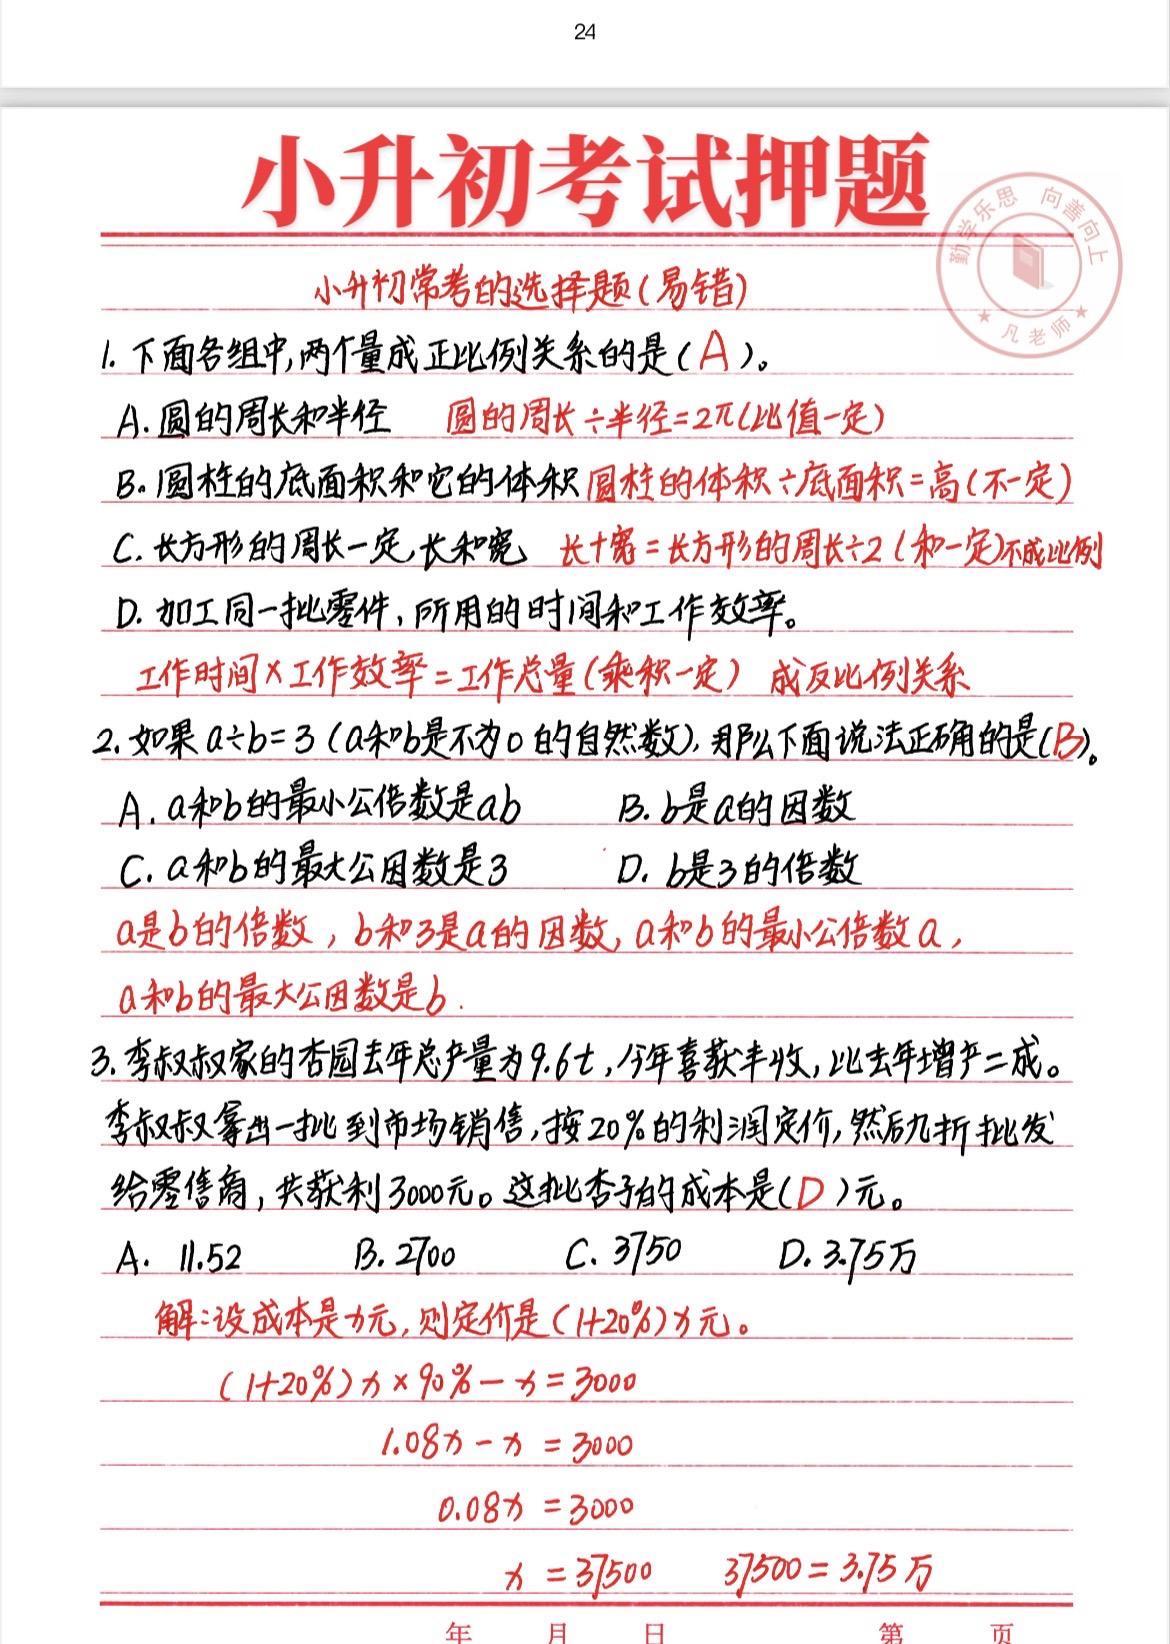 24
小升初考试押题
勤学乐思 向善向上
凡老师
小升初常考的选择题(易错)
1.下面各组中,两个量成正比例关系的是(A)。
A.圆的周长和半径 圆的周长÷半径=2π(比值一定)
B.圆柱的底面积和它的体积 圆柱的体积÷底面积=高(不一定)
C.长方形的周长一定,长和宽 长+宽=长方形的周长÷2(和一定)不成比例
D.加工同一批零件,所用的时间和工作效率。
工作时间×工作效率=工作总量(乘积一定) 成反比例关系
2.如果a÷b=3(a和b是不为0的自然数),那么下面说法正确的是(B)。
A.a和b的最小公倍数是ab B.b是a的因数
C.a和b的最大公因数是3 D.b是3的倍数
a是b的倍数,b和3是a的因数,a和b的最小公倍数a,
a和b的最大公因数是b.
3.李叔叔家的杏园去年总产量为9.6t,今年喜获丰收,比去年增产二成。
李叔叔拿出一批到市场销售,按20%的利润定价,然后九折批发
给零售商,共获利3000元。这批杏子的成本是(D)元。
A. 11.52 B.2700 C.3750 D.3.75万
解:设成本是x元,则定价是(1+20%)x元。
(1+20%)x×90%-x=3000
1.08x-x=3000
0.08x=3000
x=37500 37500=3.75万
年 月 日 第 页